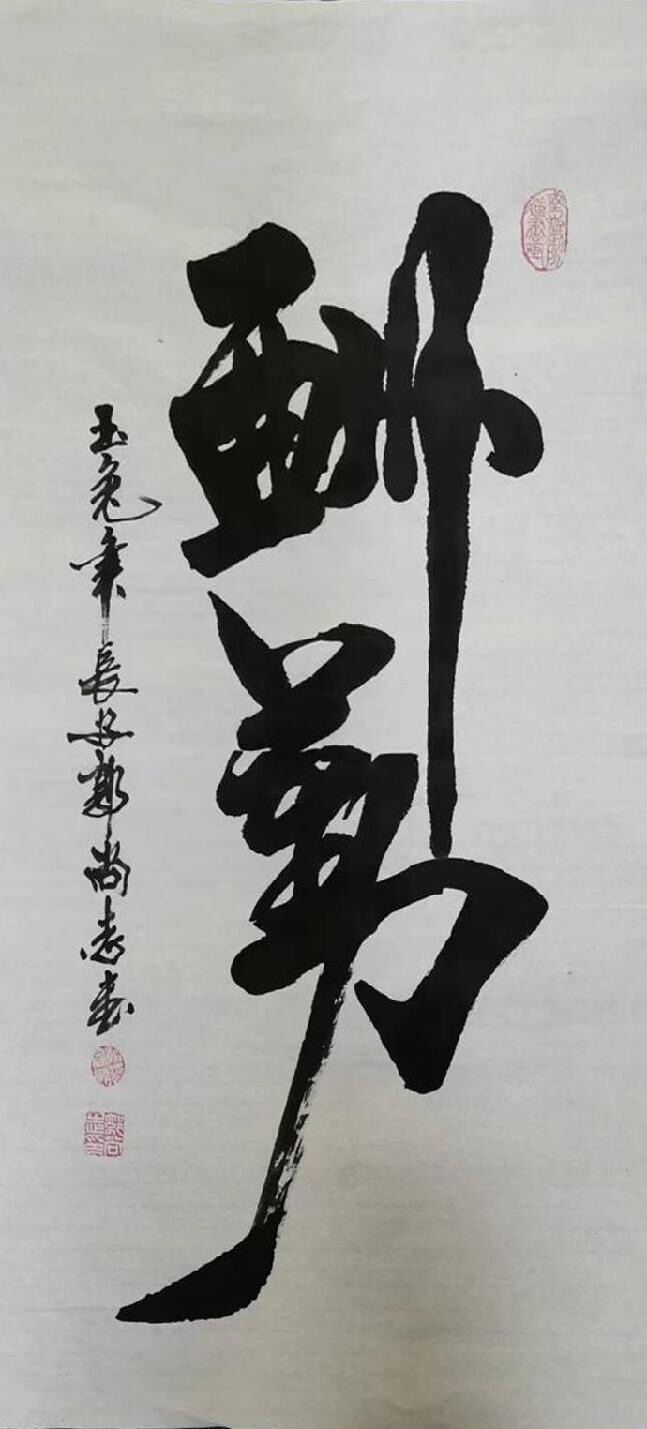 酬勤
玉兔年長安郭尚志書